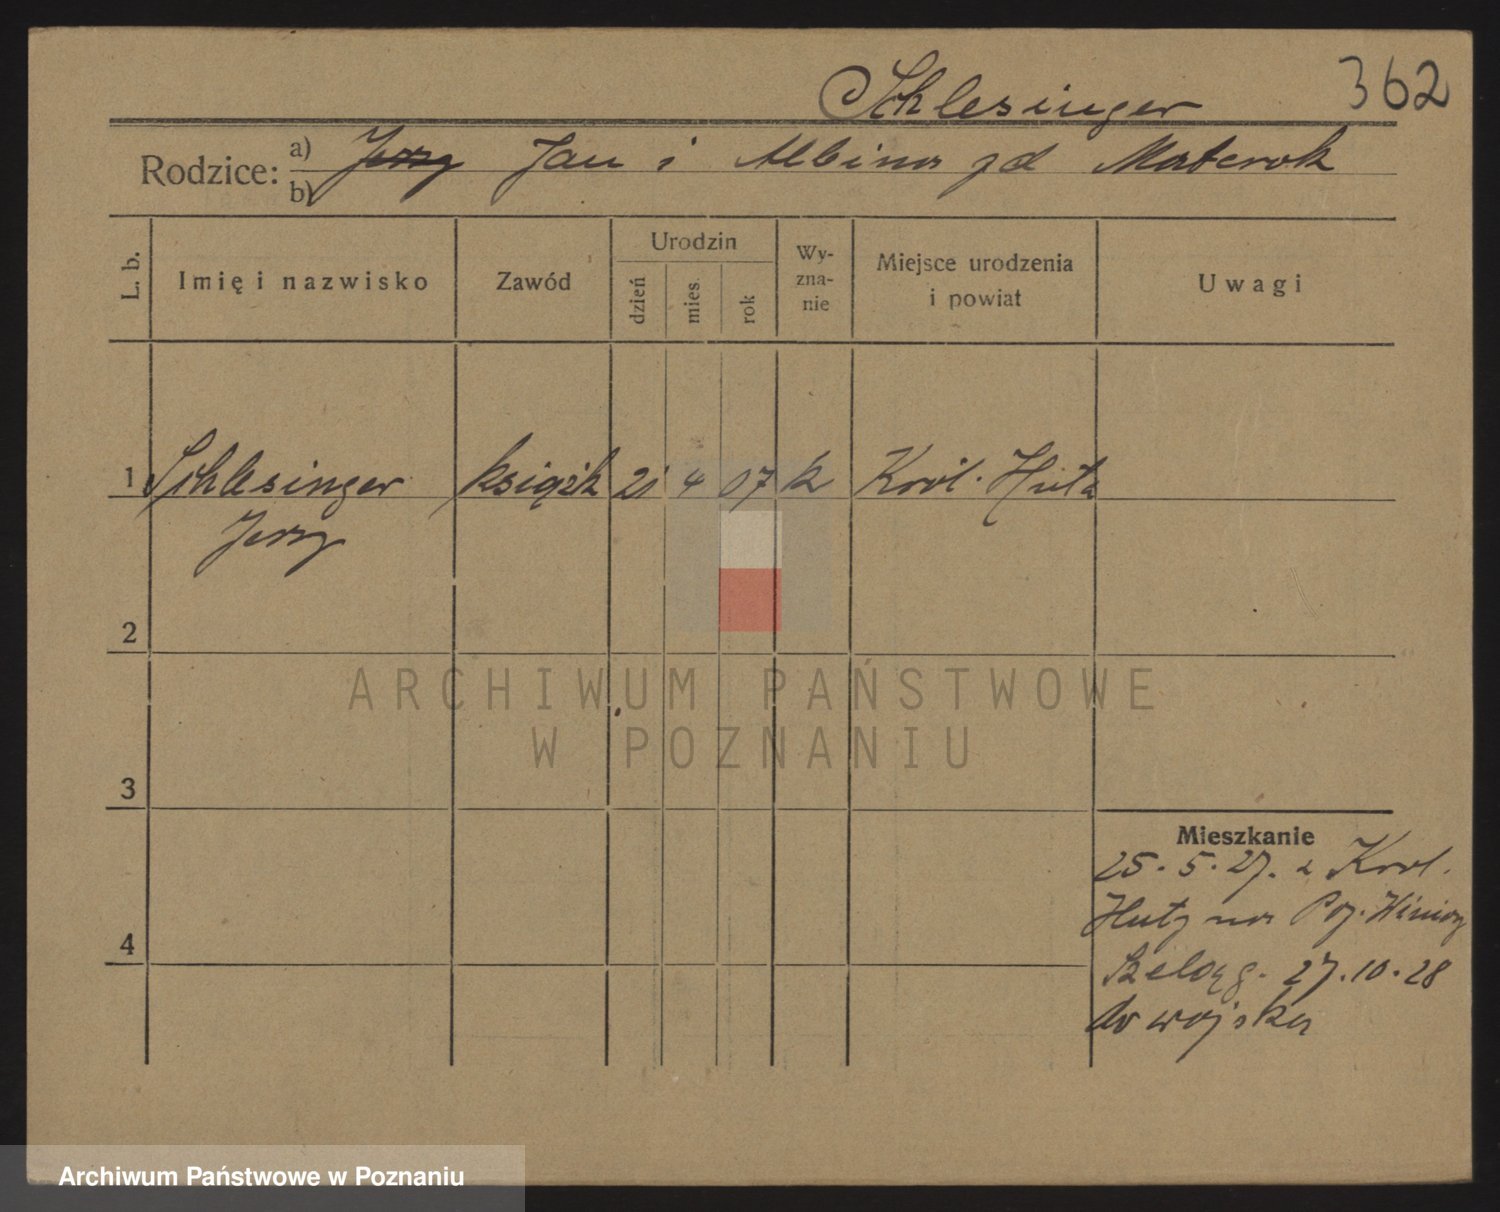 Schlesinger 362
Rodzice: a) b) Jerzy Jan i Albina zd Materok
L. b. Imię i nazwisko Zawód Urodzin dzień mies. rok Wy-zna-nie Miejsce urodzenia i powiat Uwagi
1 Schlesinger książk 21 4 07 k Król. Huta
Jerzy
2
ARCHIWUM PAŃSTWOWE
W POZNANIU
3
Mieszkanie
25. 5. 27. z Krol.
Huty na Poz. Winiary
Szeląg. 27.10.28
do wojska
4
Archiwum Państwowe w Poznaniu